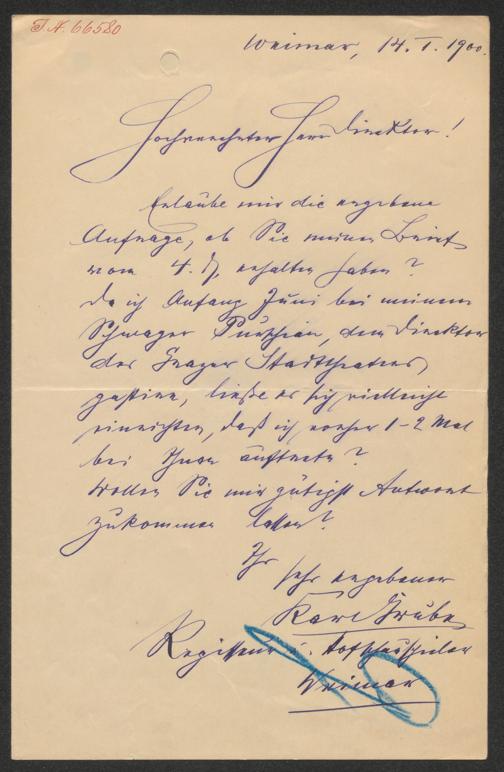 J. N. 66580
Weimar, 14. I. 1900.
Hochverehrter Herr Direktor!
Erlaube mir die ergebene
Anfrage, ob Sie meinen Brief
vom 4. d. erhalten haben?
Da ich Anfang Juni bei meinem
Schwager Purschian, dem Direktor
des Grazer Stadttheaters
gastire, ließe es sich vielleicht
einrichten, daß ich vorher 1-2 Mal
bei Ihnen auftrete?
Wollen Sie mir gütigst Antwort
zukommen lassen?
Ihr
sehr ergebener
Karl Grube
Regisseur u. Hofschauspieler
Weimar